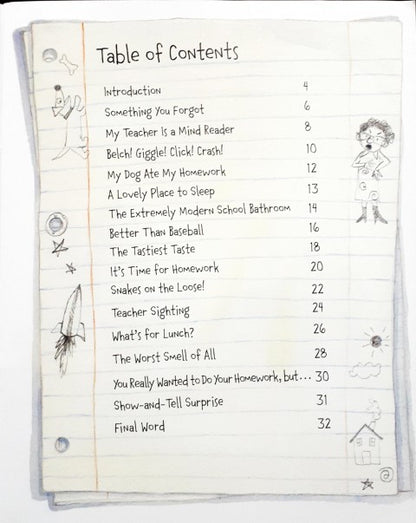 Table of Contents
Introduction 4
Something You Forgot 6
My Teacher Is a Mind Reader 8
Belch! Giggle! Click! Crash! 10
My Dog Ate My Homework 12
A Lovely Place to Sleep 13
The Extremely Modern School Bathroom 14
Better Than Baseball 16
The Tastiest Taste 18
It's Time for Homework 20
Snakes on the Loose! 22
Teacher Sighting 24
What's for Lunch? 26
The Worst Smell of All 28
You Really Wanted to Do Your Homework, but... 30
Show-and-Tell Surprise 31
Final Word 32